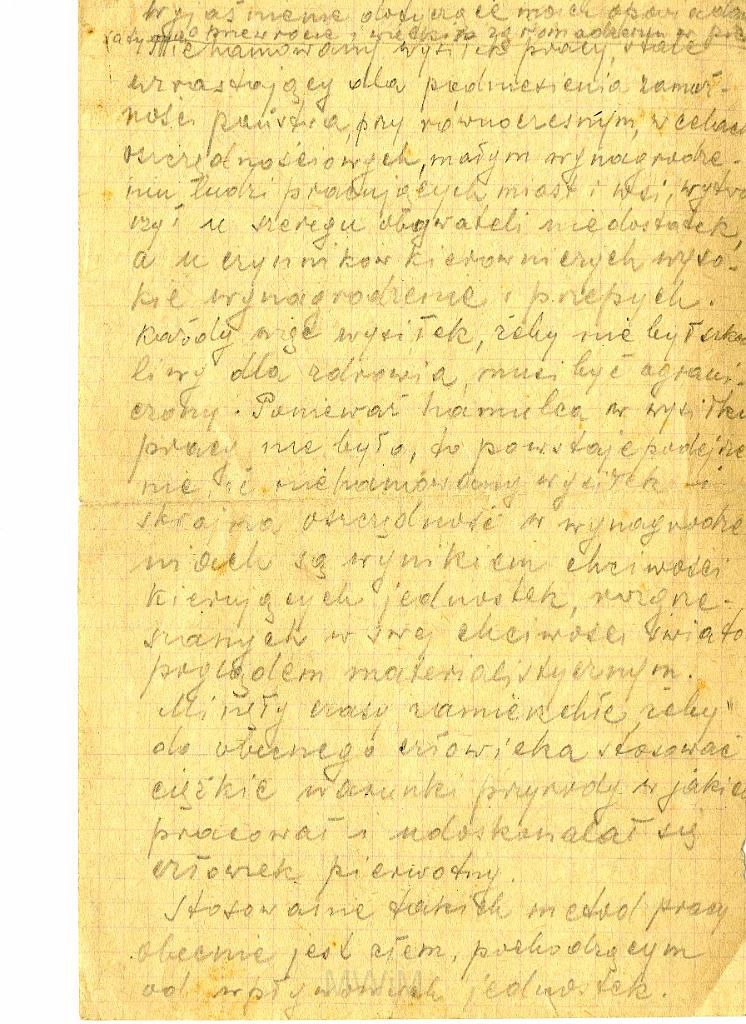 Wyjaśnienie dotyczące moich
więcki zgromadzeniu w
Niehamowany wysiłek pracy, stale
wzrastający dla podniesienia zamoż-
ności państwa, przy równoczesnym, w celach
oszczędnościowych, małym wynagrodze-
niu ludzi pracujących miast i wsi, wytwo
rzył u szeregu obywateli niedostatek,
a u czynników kierowniczych wyso-
kie wynagrodzenie i przepych.
Każdy więc wysiłek, żeby nie był szko
liwy dla zdrowia, musi być ograni-
czony. Ponieważ hamulca w wysiłku
pracy nie było, to powstaje podejrze
nie, iż niehamowany wysiłek i
skrajna oszczędność w wynagrodze
niach są wynikiem chciwości
kierujących jednostek, rozgrze-
szanych w swej chciwości świato
poglądem materialistycznym.
Minęły czasy zamierzchłe, żeby
do obecnego człowieka stosować
ciężkie warunki przyrody w jakich
pracował i udoskonalał się
człowiek pierwotny.
Stosowanie takich metod pracy
obecnie jest złem, pochodzącym
od wpływowych jednostek.
MWiM